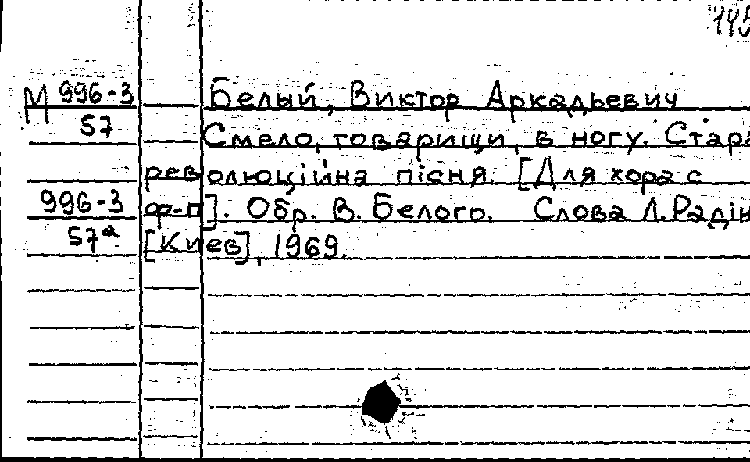 145
М 996-3 Белый, Виктор Аркадьевич
57 Смело, товарищи, в ногу. Стара
революційна пісня. [Для хора с
996-3 ф-п]. Обр. В. Белого. Слова Л. Радін
57а [Киев], 1969.